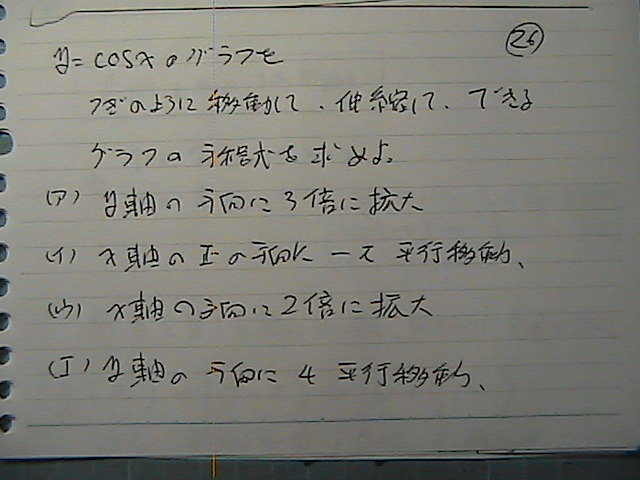 26
y=cosxのグラフを
つぎのように移動して、伸縮して、できる
グラフの方程式を求めよ。
(ア) y軸の方向に3倍に拡大
(イ) x軸の正の方向に -π 平行移動、
(ウ) x軸の方向に2倍に拡大
(エ) y軸の方向に 4 平行移動、